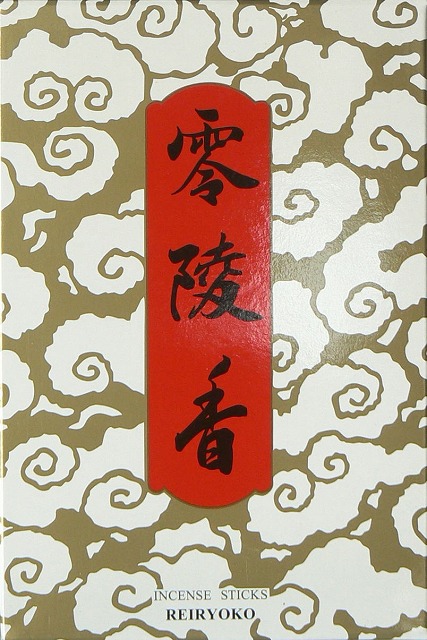 零陵香
INCENSE STICKS
REIRYOKO